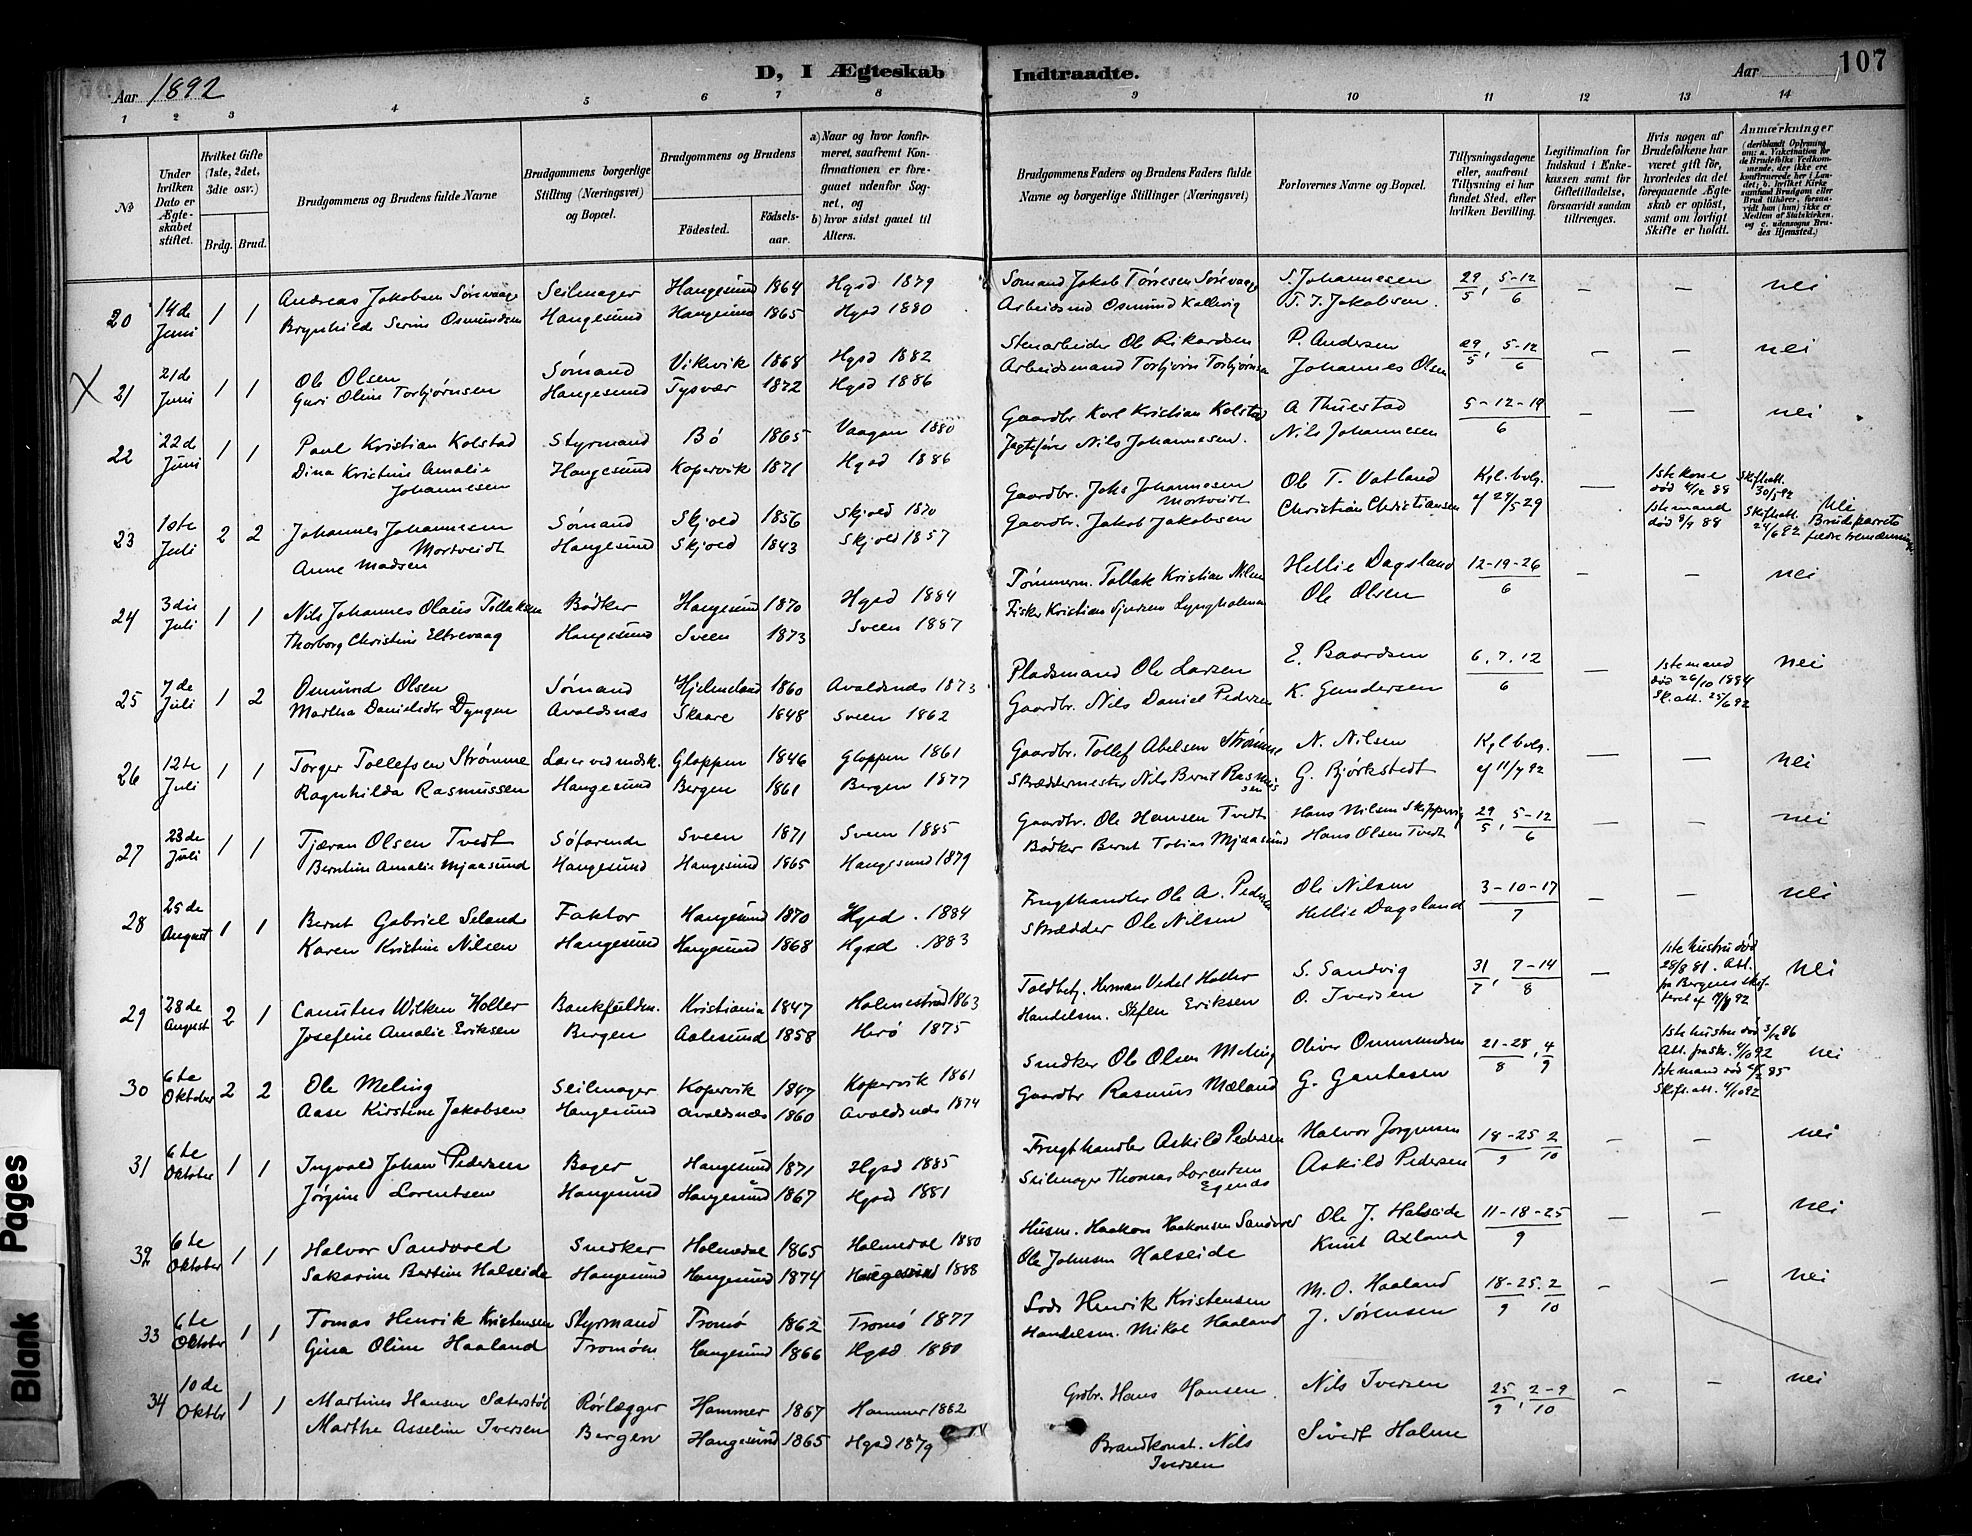 107
D, I Ægteskab Indtraadte.
Aar 1892
Aar
1 2 3 4 5 6 7 8 9 10 11 12 13 14
No
Under hvilken Dato er Ægteskabet stiftet.
Hvilket Gifte (1ste, 2det, 3die osv.)
Brdg. Brud.
Brudgommens og Brudens fulde Navne
Brudgommens borgerlige Stilling (Næringsvei) og Bopæl.
Brudgommens og Brudens
Fødested.
Fødselsaar.
a) Naar og hvor konfirmeret, saafremt Konfirmationen er foregaaet udenfor Sognet, og
b) hvor sidst gaaet til Alters.
Brudgommens Faders og Brudens Faders fulde Navne og borgerlige Stillinger (Næringsvei)
Forlovernes Navne og Bopæl.
Tillysningsdagene eller, saafremt Tillysning ei har fundet Sted, efter hvilken Bevilling.
Legitimation for Indskud i Enkekassen samt for Giftetilladelse, forsaavidt saadan tiltrænges.
Hvis nogen af Brudefolkene har været gift før, hvorledes da det foregaaende Ægteskab er opløst, samt om lovligt Skifte er holdt.
Anmærkninger (deriblandt Oplysning om: a. Vakcination for de Brudefolks Vedkommende, der ikke ere konfirmerede her i Landet; b. hvilket Kirkesamfund Brudgom eller Brud tilhører, forsaavidt han (hun) ikke er Medlem af Statskirken, og c. udensogns Brudes Hjemsted.)
20 14de Juni 1 1 Andreas Jakobsen Sørevaage Seilmager Haugesund 1864 Hgsd 1879 Sømand Jakob Tørresen Sørevaage S. Johannesen 29/5, 5-12/6 — — nei
Brynhilde Serine Osmundsen Haugesund Haugesund 1865 Hgsd 1880 Arbeidsmd Osmund Kallevig T. J. Jakobsen.
X 21 21de Juni 1 1 Ole Olsen Sømand Vikevik 1868 Hgsd 1882 Stenarbeider Ole Rikardsen P. Andersen 29/5, 5-12/6 — — nei
Guri Oline Torbjørnsen Haugesund Tysvær 1872 Hgsd 1886 Arbeidsmand Torbjørn Torbjørnsen Johannes Olsen
22 22d Juni 1 1 Paul Kristian Kolstad Styrmand Bö 1865 Vaagan 1880 Gaardbr. Karl Kristian Kolstad A Thuestad 5-12-19/6 — — nei
Dina Kristine Amalie Johannesen Haugesund Kopervik 1871 Hgsd 1886 Jagtefører Nils Johannesen. Nils Johannesen
23 1ste Juli 2 2 Johannes Johannesen Mortveidt Sømand Skjold 1856 Skjold 1870 Gaardbr. Johs Johannesen Mortveidt Ole T. Vatland Kgl. bvlg. — 1ste kone død Skifteatt. 30/5 92 Nei
Anne Madsen Haugesund Skjold 1843 Skjold 1857 Gaardbr. Jakob Jakobsen Christian Christiansen 1ste mand død Skifteatt. 24/6 92 Brudeparrets
24 3die Juli 1 1 Nils Johannes Olaus Tollaksen Bødker Haugesund 1870 Hgsd 1884 Tømmerm. Tollak Kristian Nilsen Hellie Dagsland 12-19-26/6 — — nei
Thorborg Christine Eltrevaag Haugesund Sveen 1873 Sveen 1887 Fisker Kristian Lyngholmen Ole Olsen
25 7de Juli 1 2 Osmund Olsen Sømand Hjelmeland 1860 Avaldsnes 1873 Pladsmand Ole Larsen E. Baardsen 6, 7, 12/6 — 1ste mand død 26/10 1884 nei
Martha Danielsdtr Dyngen Avaldsnæs Skaare 1848 Sveen 1862 Gaardbr. Nils Daniel Pedersen K. Gundersen Sk. att. 25/6 92
26 12te Juli 1 1 Torger Tollefsen Strømme Lærer ved mdsk. Gloppen 1846 Gloppen 1861 Gaardbr. Tollef Abelsen Strømme N. Nilsen Kgl bvlg. — — nei
Ragnhilda Rasmussen Haugesund Bergen 1861 Bergen 1877 Skræddermester Nils Bernt Rasmussen G. Bjørkstedt af 11/7 92
27 23de Juli 1 1 Tjæran Olsen Tvedt Søfarende Sveen 1871 Sveen 1885 Gaardbr. Ole Hansen Tvedt Hans Nilsen 29/5, 5-12/6 — — nei
Berntine Amalie Mjaasund Haugesund Haugesund 1865 Haugesund 1879 Bødker Bernt Tobias Mjaasund Hans Olsen Tvedt
28 25de August 1 1 Bernt Gabriel Seland Faktor Haugesund 1870 Hgsd. 1884 Frugthandler Ole A. Pedersen Ole Nilsen 3-10-17/7 — — nei
Karen Kristine Nilsen Haugesund Haugesund 1868 Hgsd. 1883 Skrædder Ole Nilsen Hellie Dagsland
29 28de August 2 1 Canutus Wilken Holler Bankfuldm. Kristiania 1847 Holmestrand 1863 Toldbetj. Herman Vedel Holler S. Sandvig 31/7, 7-14/8 — 1ste hustru død 28/8 81. Att. fra Bergens nei
Josefine Amalie Eriksen Bergen Aalesund 1858 Herö 1875 Handelsm. Steffen Eriksen O. Iversen
30 6te Oktober 2 2 Ole Meling Seilmager Kopervik 1847 Kopervik 1861 Snedker Ole Olsen Meling Oliver Ommundsen 21-28/8, 4/9 1ste hustru død 3/12 86 Att. fra sk. 4/10 92 nei
Aase Kirstine Jakobsen Haugesund Avaldsnæs 1860 Avaldsnæs 1874 Gaardbr Rasmus Mæland G. Gautesen 1ste mand død 85 Skift. att. 4/10 92
31 6te Oktober 1 1 Ingvald Johan Pedersen Bager Haugesund 1871 Hgsd 1885 Frugthandler Askild Pedersen Halvor Jørgensen 18-25/9 2/10 — — nei
Jørgine Lorentsen Haugesund Haugesund 1867 Hgsd 1881 Seilmager Thomas Lorentsen Egenæs Askild Pedersen
32 6te Oktober 1 1 Halvor Sandvold Snedker Holmedal 1865 Holmedal 1880 Husm. Haakon Haakonsen Sandvold Ole J. Halseide 11-18-25/9 — — nei
Sakarine Bertine Halseide Haugesund Haugesund 1874 Haugesund 1888 Ole Johnsen Halseide Knut Axland
33 6te Oktober 1 1 Tomas Henrik Kristensen Styrmand Tromø 1862 Tromö 1877 Lods Henrik Kristensen M. O. Haaland 18-25/9. 2/10 — — nei
Gina Oline Haaland Tromøen Haugesund 1866 Hgsd 1880 Handelsm. Mikal Haaland J. Sørensen
34 10de Oktbr 1 1 Martinus Hansen Sæterstøl Rørlægger Hammer 1867 Hammer 1882 Grdbr. Hans Hansen. Nils Iversen 25/9, 2-9/10 — — nei
Marthe Asseline Iversen Bergen Haugesund 1865 Hgsd 1879 Brandkonst. Nils Iversen Sivert Holme
Blank Pages